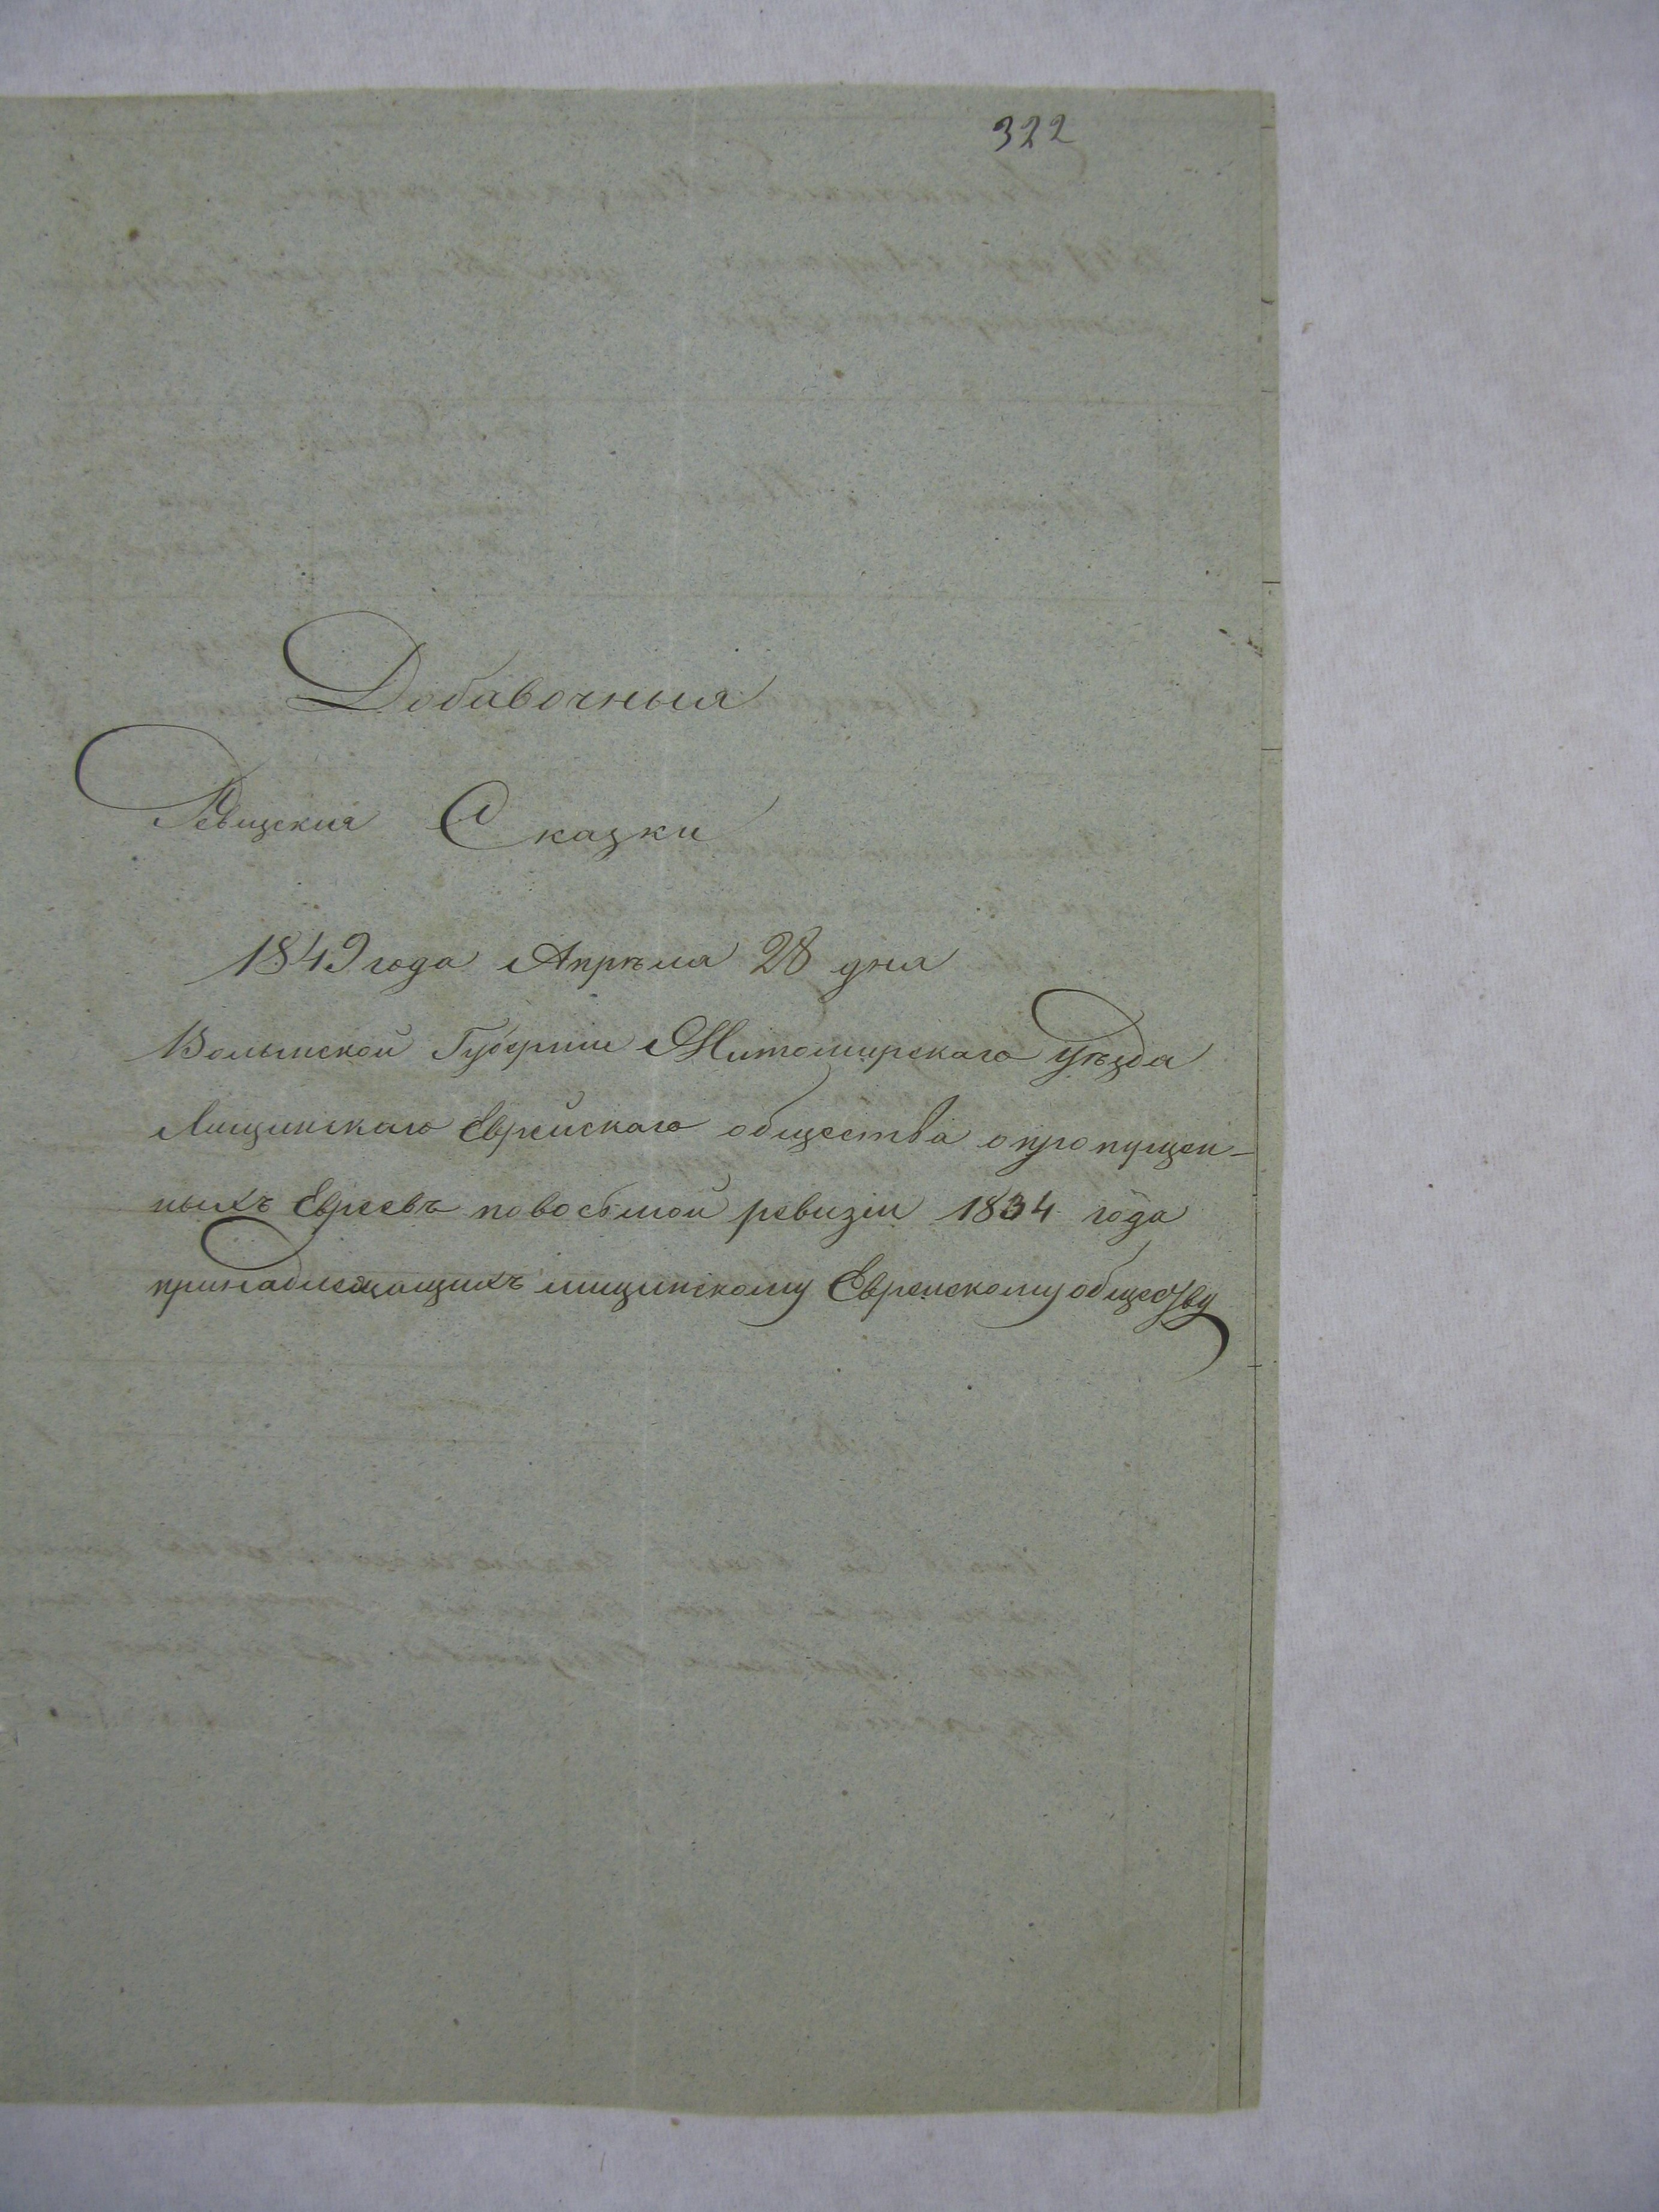 322
Добавочныя
Ревизскія Сказки
1849 года Апрѣля 28 дня
Волынской Губерніи Житомирскаго Уѣзда
Лищинскаго Еврейскаго общества о пропущен-
ныхъ Евреевъ по восьмой ревизіи 1834 года
принадлежащихъ лищинскому Еврейскому обществу